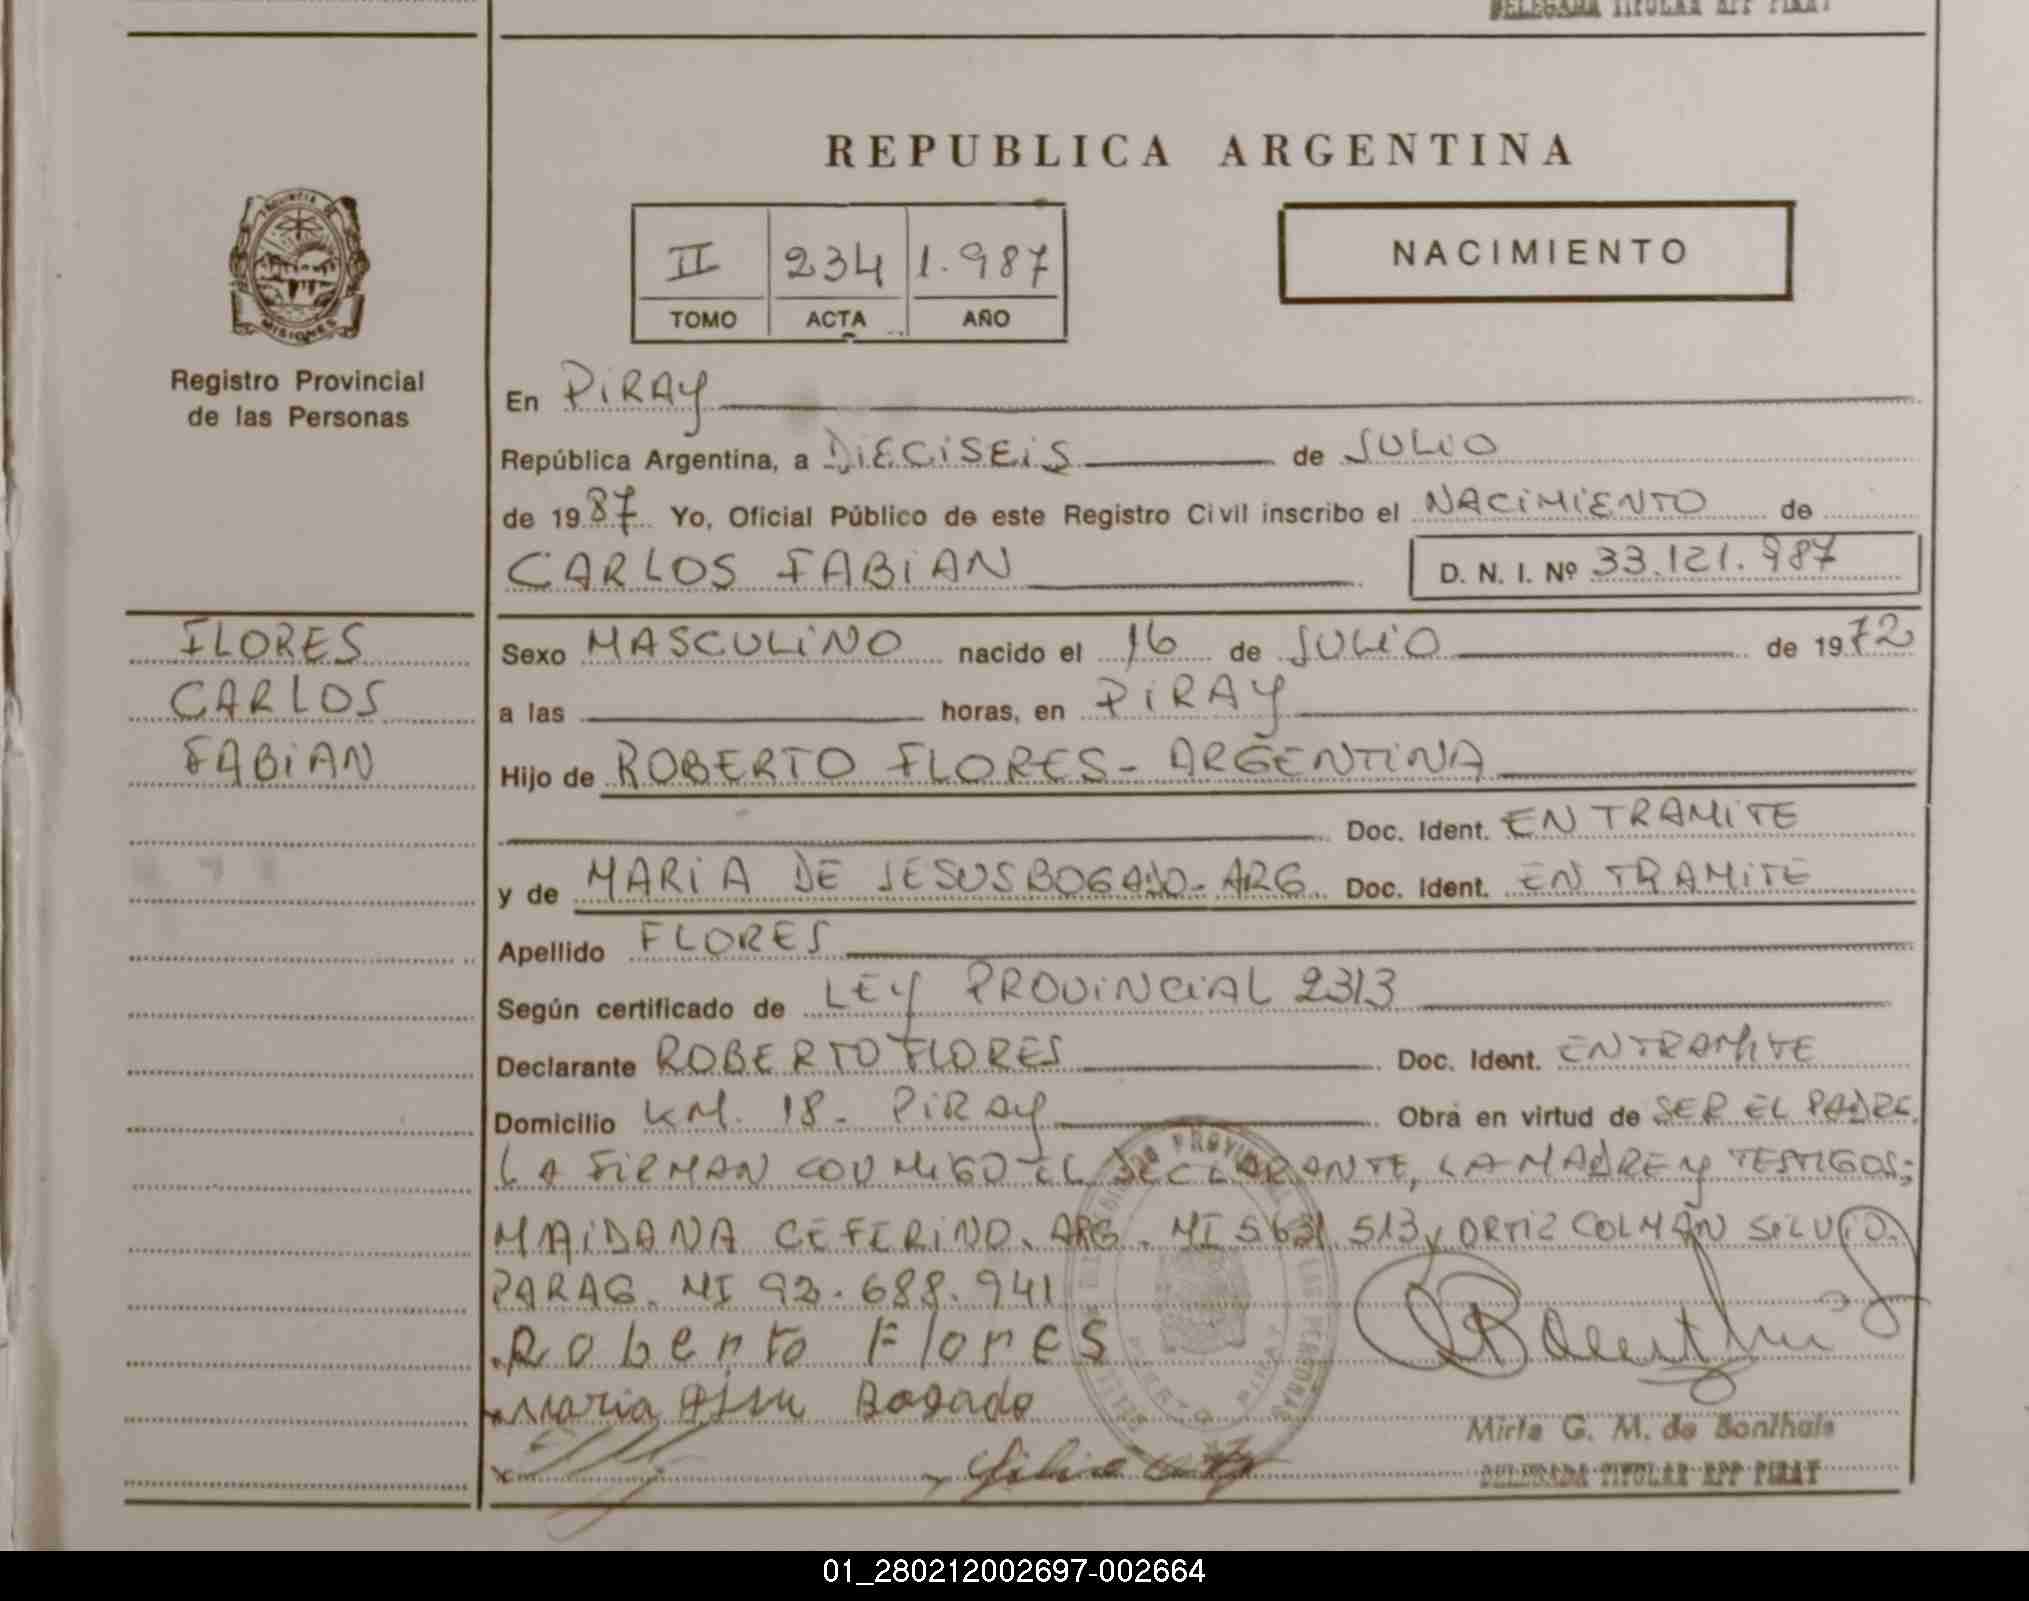 DELEGADA TITULAR RPP PIRAY
REPUBLICA ARGENTINA
II 234 1.987
TOMO ACTA AÑO
NACIMIENTO
PROVINCIA DE
MISIONES
Registro Provincial
de las Personas
En PIRAY
República Argentina, a DIECISEIS de JULIO
de 1987 Yo, Oficial Público de este Registro Civil inscribo el NACIMIENTO de
CARLOS FABIAN D. N. I. Nº 33.121.987
FLORES
CARLOS
FABIAN
Sexo MASCULINO nacido el 16 de JULIO de 1972
a las horas, en PIRAY
Hijo de ROBERTO FLORES - ARGENTINA
Doc. Ident. EN TRAMITE
y de MARIA DE JESUS BOGADO - ARG. Doc. Ident. EN TRAMITE
Apellido FLORES
Según certificado de LEY PROVINCIAL 2313
Declarante ROBERTO FLORES Doc. Ident. EN TRAMITE
Domicilio KM. 18 - PIRAY Obra en virtud de SER EL PADRE.
LA FIRMAN CONMIGO EL DECLARANTE, LA MADRE Y TESTIGOS;
MAIDANA CEFERINO. ARG. MI 5631513 y ORTIZ COLMAN SILVIO.
PARAG. MI 92.688.941
Roberto Flores
Maria Bogado
Mirta G. M. de Bonthais
DELEGADA TITULAR RPP PIRAY
01_280212002697-002664